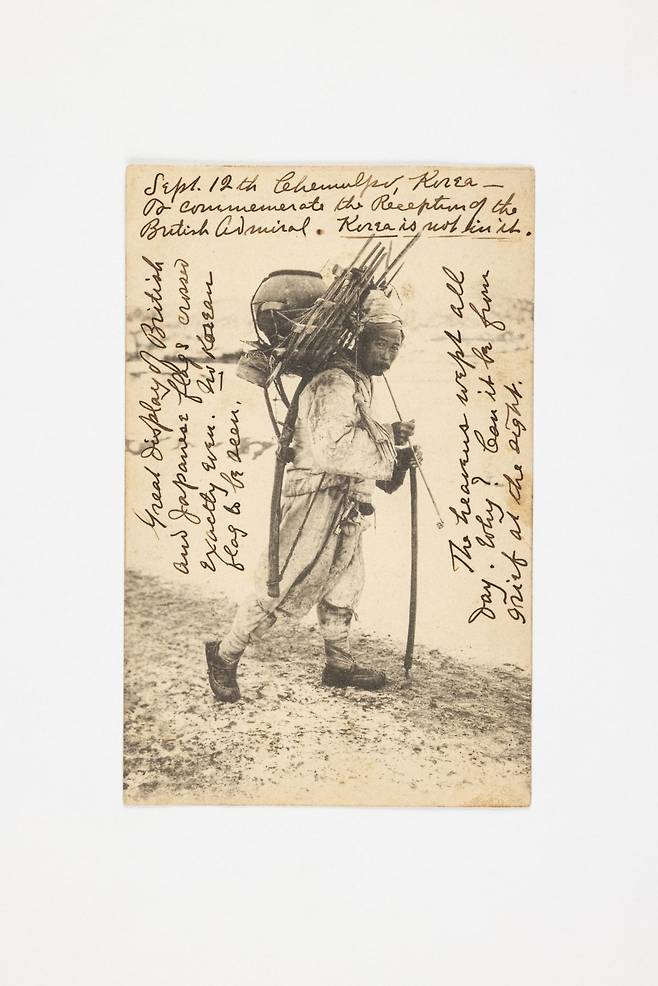 Sept. 12th Chemulpo, Korea —
To commemerate the Reception of the
British Admiral. Korea is not in it.
Great display of British
and Japanese flags crossed
exactly even. No Korean
flag to be seen,
The heavens wept all
day. Why? Can it be from
grief at the sight.